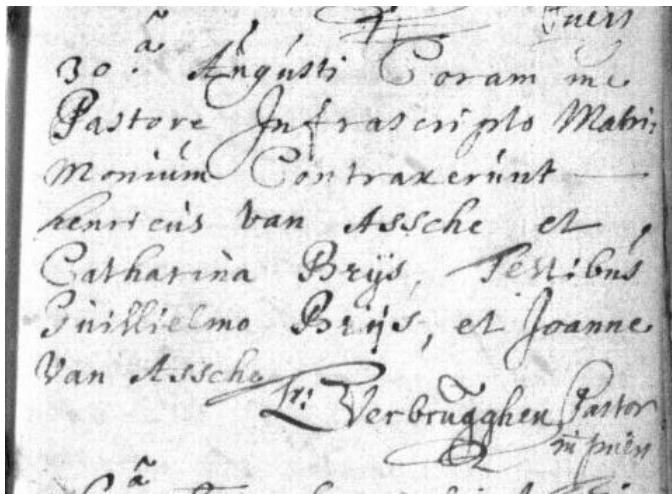 Puers
30.ª Augusti Coram me
Pastore Infrascripto Matri:
monium Contraxerunt
henricus Van Assche et
Catharina Brijs, Testibus
Guillielmo Brijs, et Joanne
Van Assche
Fr: Verbrugghen Pastor
in puers